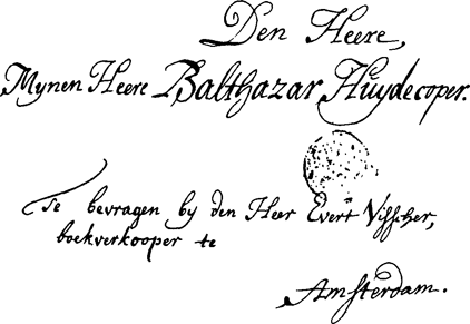 Den Heere,
Mynen Heere Balthazar Huydecoper.
Te bevragen by den Heer Evert Visscher,
boekverkooper te
Amsterdam.